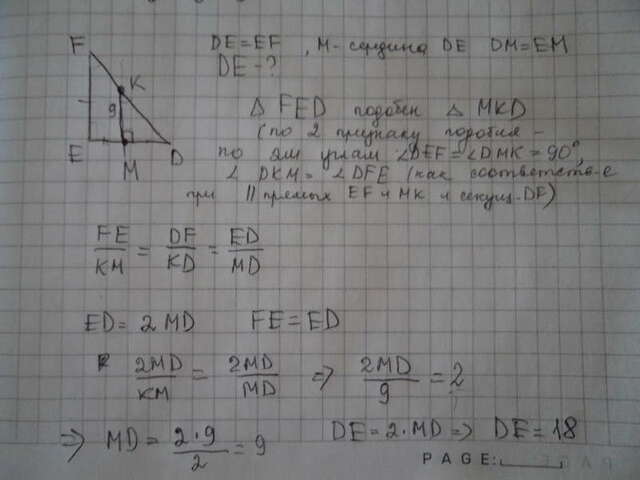 DE = EF , M - середина DE DM = EM
DE - ?
F
K
9
E
M
D
Δ FED подобен Δ MKD
(по 2 признаку подобия -
по дум углам ∠DEF = ∠DMK = 90°,
∠ DKM = ∠DFE (как соответств-е
при || прямых EF и MK и секущ. DF)
FE/KM = DF/KD = ED/MD
ED = 2 MD FE = ED
2MD/KM = 2MD/MD ⇒ 2MD/9 = 2
⇒ MD = 2·9/2 = 9 DE = 2·MD ⇒ DE = 18
PAGE: